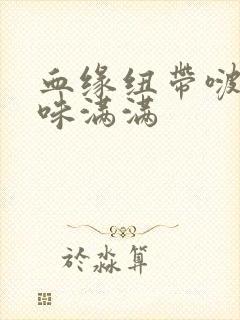 血缘纽带啵
咪满满
於淼算